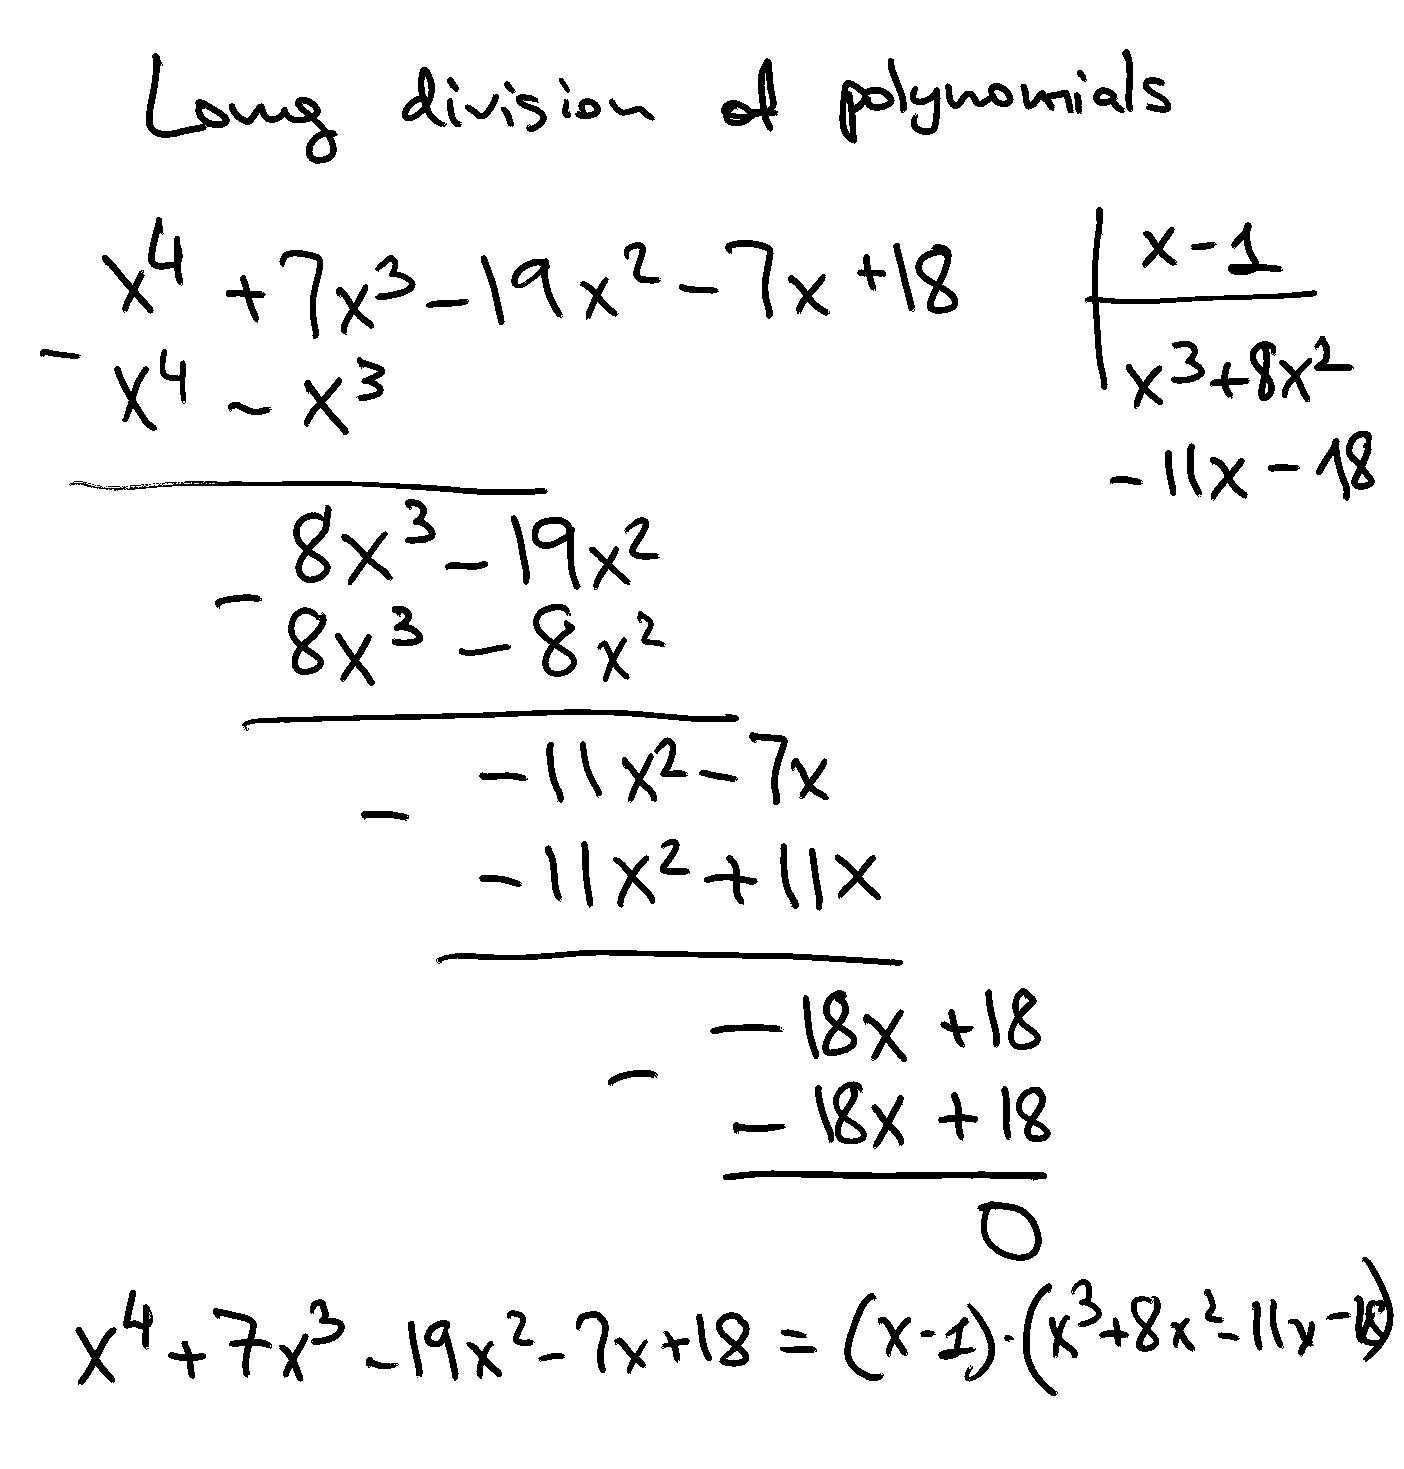 Long division of polynomials
x⁴ + 7x³ - 19x² - 7x + 18 | x - 1
- x⁴ - x³
x³ + 8x²
- 11x - 18
8x³ - 19x²
-
8x³ - 8x²
- 11x² - 7x
-
- 11x² + 11x
- 18x + 18
-
- 18x + 18
0
x⁴ + 7x³ - 19x² - 7x + 18 = (x - 1) · (x³ + 8x² - 11x - 18)